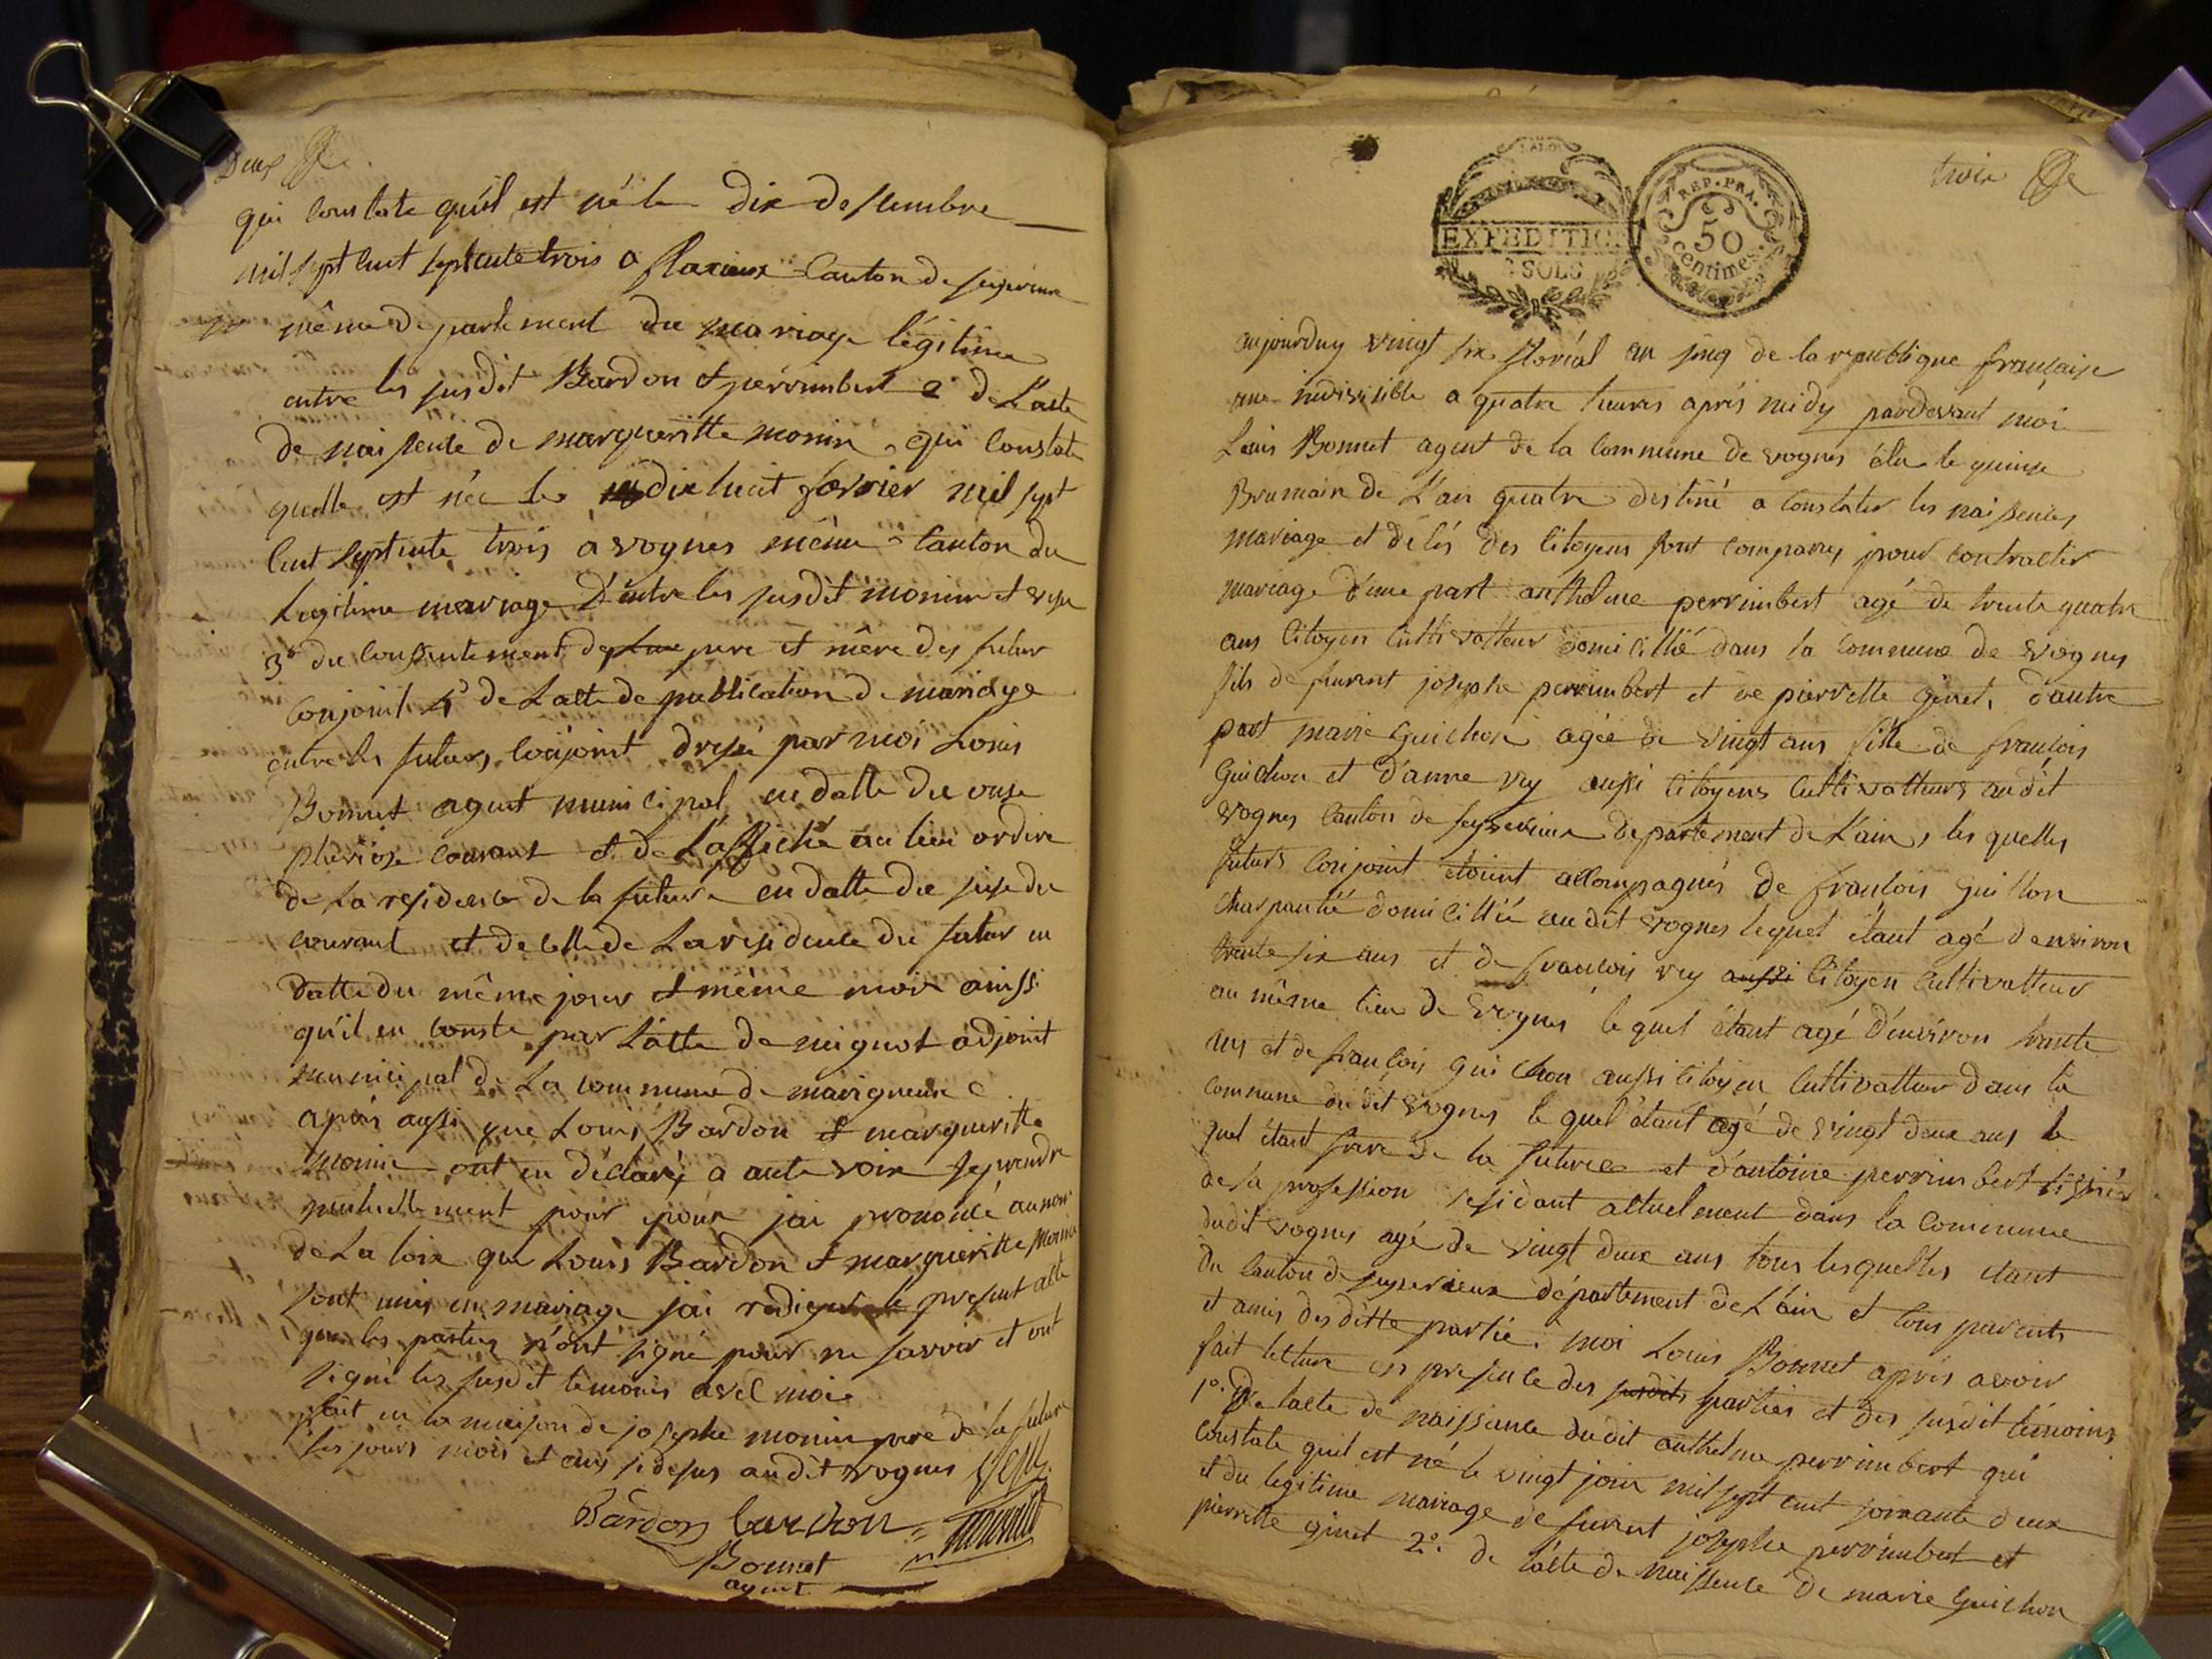 Deux
qui constate qu'il est né le dix decembre
mil sept cent septente trois a flaxieux canton de seyserieux
même departement du mariage légitime
entre les susdit Bardon et perrimbert 2° de L'acte
de naissence de margueritte monin qui constate
quelle est née le dix huit fevrier mil sept
cent septente trois a vognes même canton du
Legitime mariage D'entre les susdit monin et
3° du consentement des pere et mère des futur
conjoint 4° de Lacte de publication de mariage
entre les futurs conjoint dressé par moi Louis
Bonnet agent municipal en datte du onse
pluviose courant et de L'affiche au lieu ordire
de La residence de la future en datte du seise du
courant et de celle de La residence du futur en
datte du même jour et même mois ainssi
qu'il en conste par L'acte de mignot adjoint
municipal de La commune de marignieux
après aussi que Louis Bardon et margueritte
monin ont eu déclaré a aute voix se prendre
mutuellement pour epoux jai prononcé au nom
de La loix que Louis Bardon et margueritte monin
sont unis en mariage jai redigé le present acte
que les parties n'ont signé pour ne savoir et ont
signé les susdit temoins avec moi
fait en la maison de josephe monin pere de la future
les jours mois et ans sidesus audit vognes
Bardon Guichon
Bonnet
agent
trois
EXPEDITION
SOLS
REP. FRA.
50
centimes
aujourduy vingt six floréal an sinq de la republique française
une indivisible a quatre heures après midy pardevant moi
Louis Bonnet agent de la commune de vognes élu le quinse
Brumaire de L'an quatre destiné a constater les naissences
mariage et décès des citoyens sont comparus pour contracter
mariage d'une part anthelme perrimbert agé de trente quatre
ans citoyen cultivatteur domicillié dans la commune de vognes
fils de furent josephe perrimbert et de pierrette ginet, d'autre
part marie Guichon agée de vingt ans fille de francois
Guichon et d'anne rey aussi citoyens cultivatteurs audit
vognes canton de seyserieux departement de L'ain, les quelles
futurs conjoint etoient accompagnés de francois Guillon
charpantié domicillié audit vognes lequel étant agé denviron
trente six ans et de francois rey aussi citoyen cultivatteur
au même lieu de vognes le quel étant agé d'environ trante
ans et de françois guichon aussi citoyen cultivatteur dans la
commune dudit vognes le quel étant agé de vingt deux ans le
quel étant frere de la future et d'antoine perrimbert
de sa profession residant actuelment dans la commune
dudit vognes agé de vingt deux ans tous lesquelles étant
du canton de seyserieux département de L'ain et tous parents
et amis des ditte partié. moi Louis Bonnet après avoir
fait lecture en presence des susdits parties et des susdit témoins
1°. De lacte de naissance dudit anthelme perrimbert qui
constate quil est né le vingt join mil sept cent soixante deux
et du legitime mariage de furent josephe perrimbert et
pierrette ginet 2°. de l'acte de naissence de marie Guichon